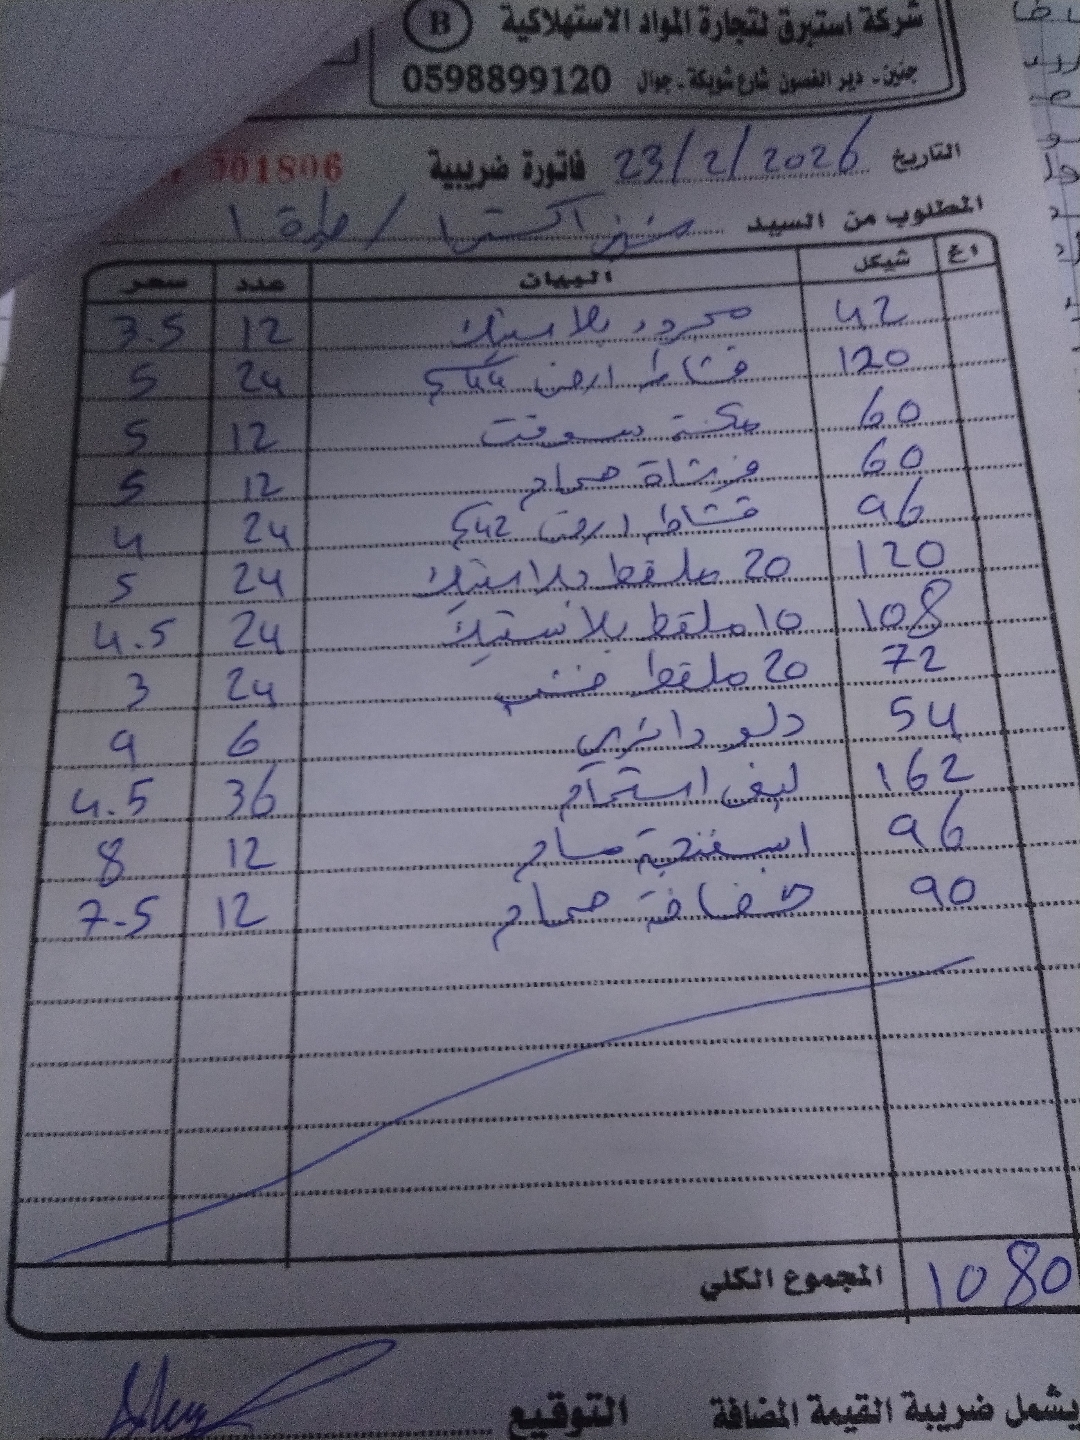 شركة استبرق لتجارة المواد الاستهلاكية
B
جنين - دير الغصون شارع شويكة - جوال 0598899120
التاريخ 23/2/2026 فاتورة ضريبية 001806
المطلوب من السيد اكسترا / 1
اغ شيكل البيان عدد سعر
42 مجرود بلاستيك 12 3.5
120 قشاط ارض 44 24 5
60 مكنسة سوفت 12 5
60 فرشاة حمام 12 5
96 قشاط ارض 42 24 4
120 20 ملقط بلاستيك 24 5
108 10 ملقط بلاستيك 24 4.5
72 20 ملقط خشب 24 3
54 دلو دائري 6 9
162 ليف استحمام 36 4.5
96 اسفنجة مساج 12 8
90 شفافة حمام 12 7.5
المجموع الكلي 1080
يشمل ضريبة القيمة المضافة التوقيع